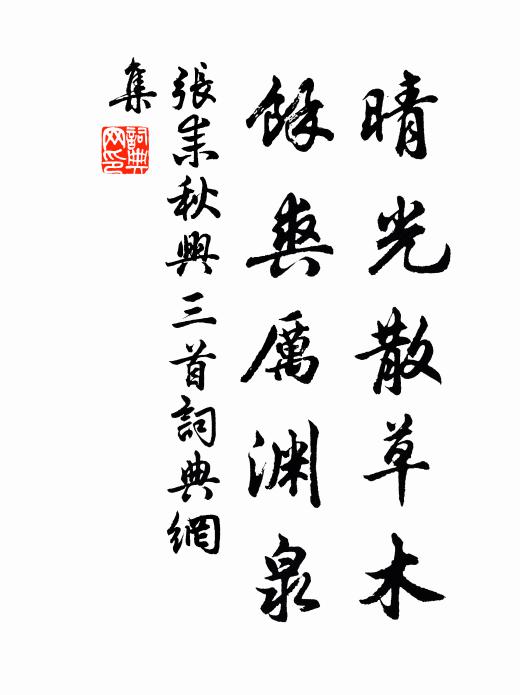 晴光散草木
餘爽厲淵泉
張耒秋興三首詞典網
集
詞典網印